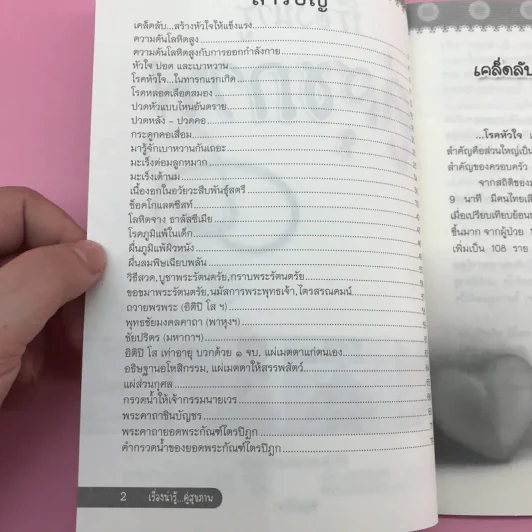 สารบัญ
เคล็ดลับ...สร้างหัวใจให้แข็งแรง
ความดันโลหิตสูง
ความดันโลหิตสูงกับการออกกำลังกาย
หัวใจ ปอด และเบาหวาน
โรคหัวใจ...ในทารกแรกเกิด
โรคหลอดเลือดสมอง
ปวดหัวแบบไหนอันตราย
ปวดหลัง - ปวดคอ
กระดูกคอเสื่อม
มารู้จักเบาหวานกันเถอะ
มะเร็งต่อมลูกหมาก
มะเร็งเต้านม
เนื้องอกในอวัยวะสืบพันธุ์สตรี
ช็อคโกแลตซีสท์
โลหิตจาง ธาลัสซีเมีย
โรคภูมิแพ้ในเด็ก
ผื่นภูมิแพ้ผิวหนัง
ผื่นลมพิษเฉียบพลัน
วิธีสวด,บูชาพระรัตนตรัย,กราบพระรัตนตรัย
ขอขมาพระรัตนตรัย,นมัสการพระพุทธเจ้า,ไตรสรณคมน์
ถวายพรพระ (อิติปิ โส ฯ)
พุทธชัยมงคลคาถา (พาหุงฯ)
ชัยปริตร (มหากาฯ)
อิติปิ โส เท่าอายุ บวกด้วย ๑ จบ, แผ่เมตตาแก่ตนเอง
อธิษฐานอโหสิกรรม, แผ่เมตตาให้สรรพสัตว์
แผ่ส่วนกุศล
กรวดน้ำให้เจ้ากรรมนายเวร
พระคาถาชินบัญชร
พระคาถายอดพระกัณฑ์ไตรปิฎก
คำกรวดน้ำของยอดพระกัณฑ์ไตรปิฎก
2 เรื่องน่ารู้...คู่สุขภาพ
เคล็ดลับ
...โรคหัวใจ
สำคัญคือส่วนใหญ่เป็น
สำคัญของครอบครัว
จากสถิติของ
9 นาที มีคนไทยเสี
เมื่อเปรียบเทียบย้อน
ขึ้นมาก จากผู้ป่วย 1
เพิ่มเป็น 108 ราย